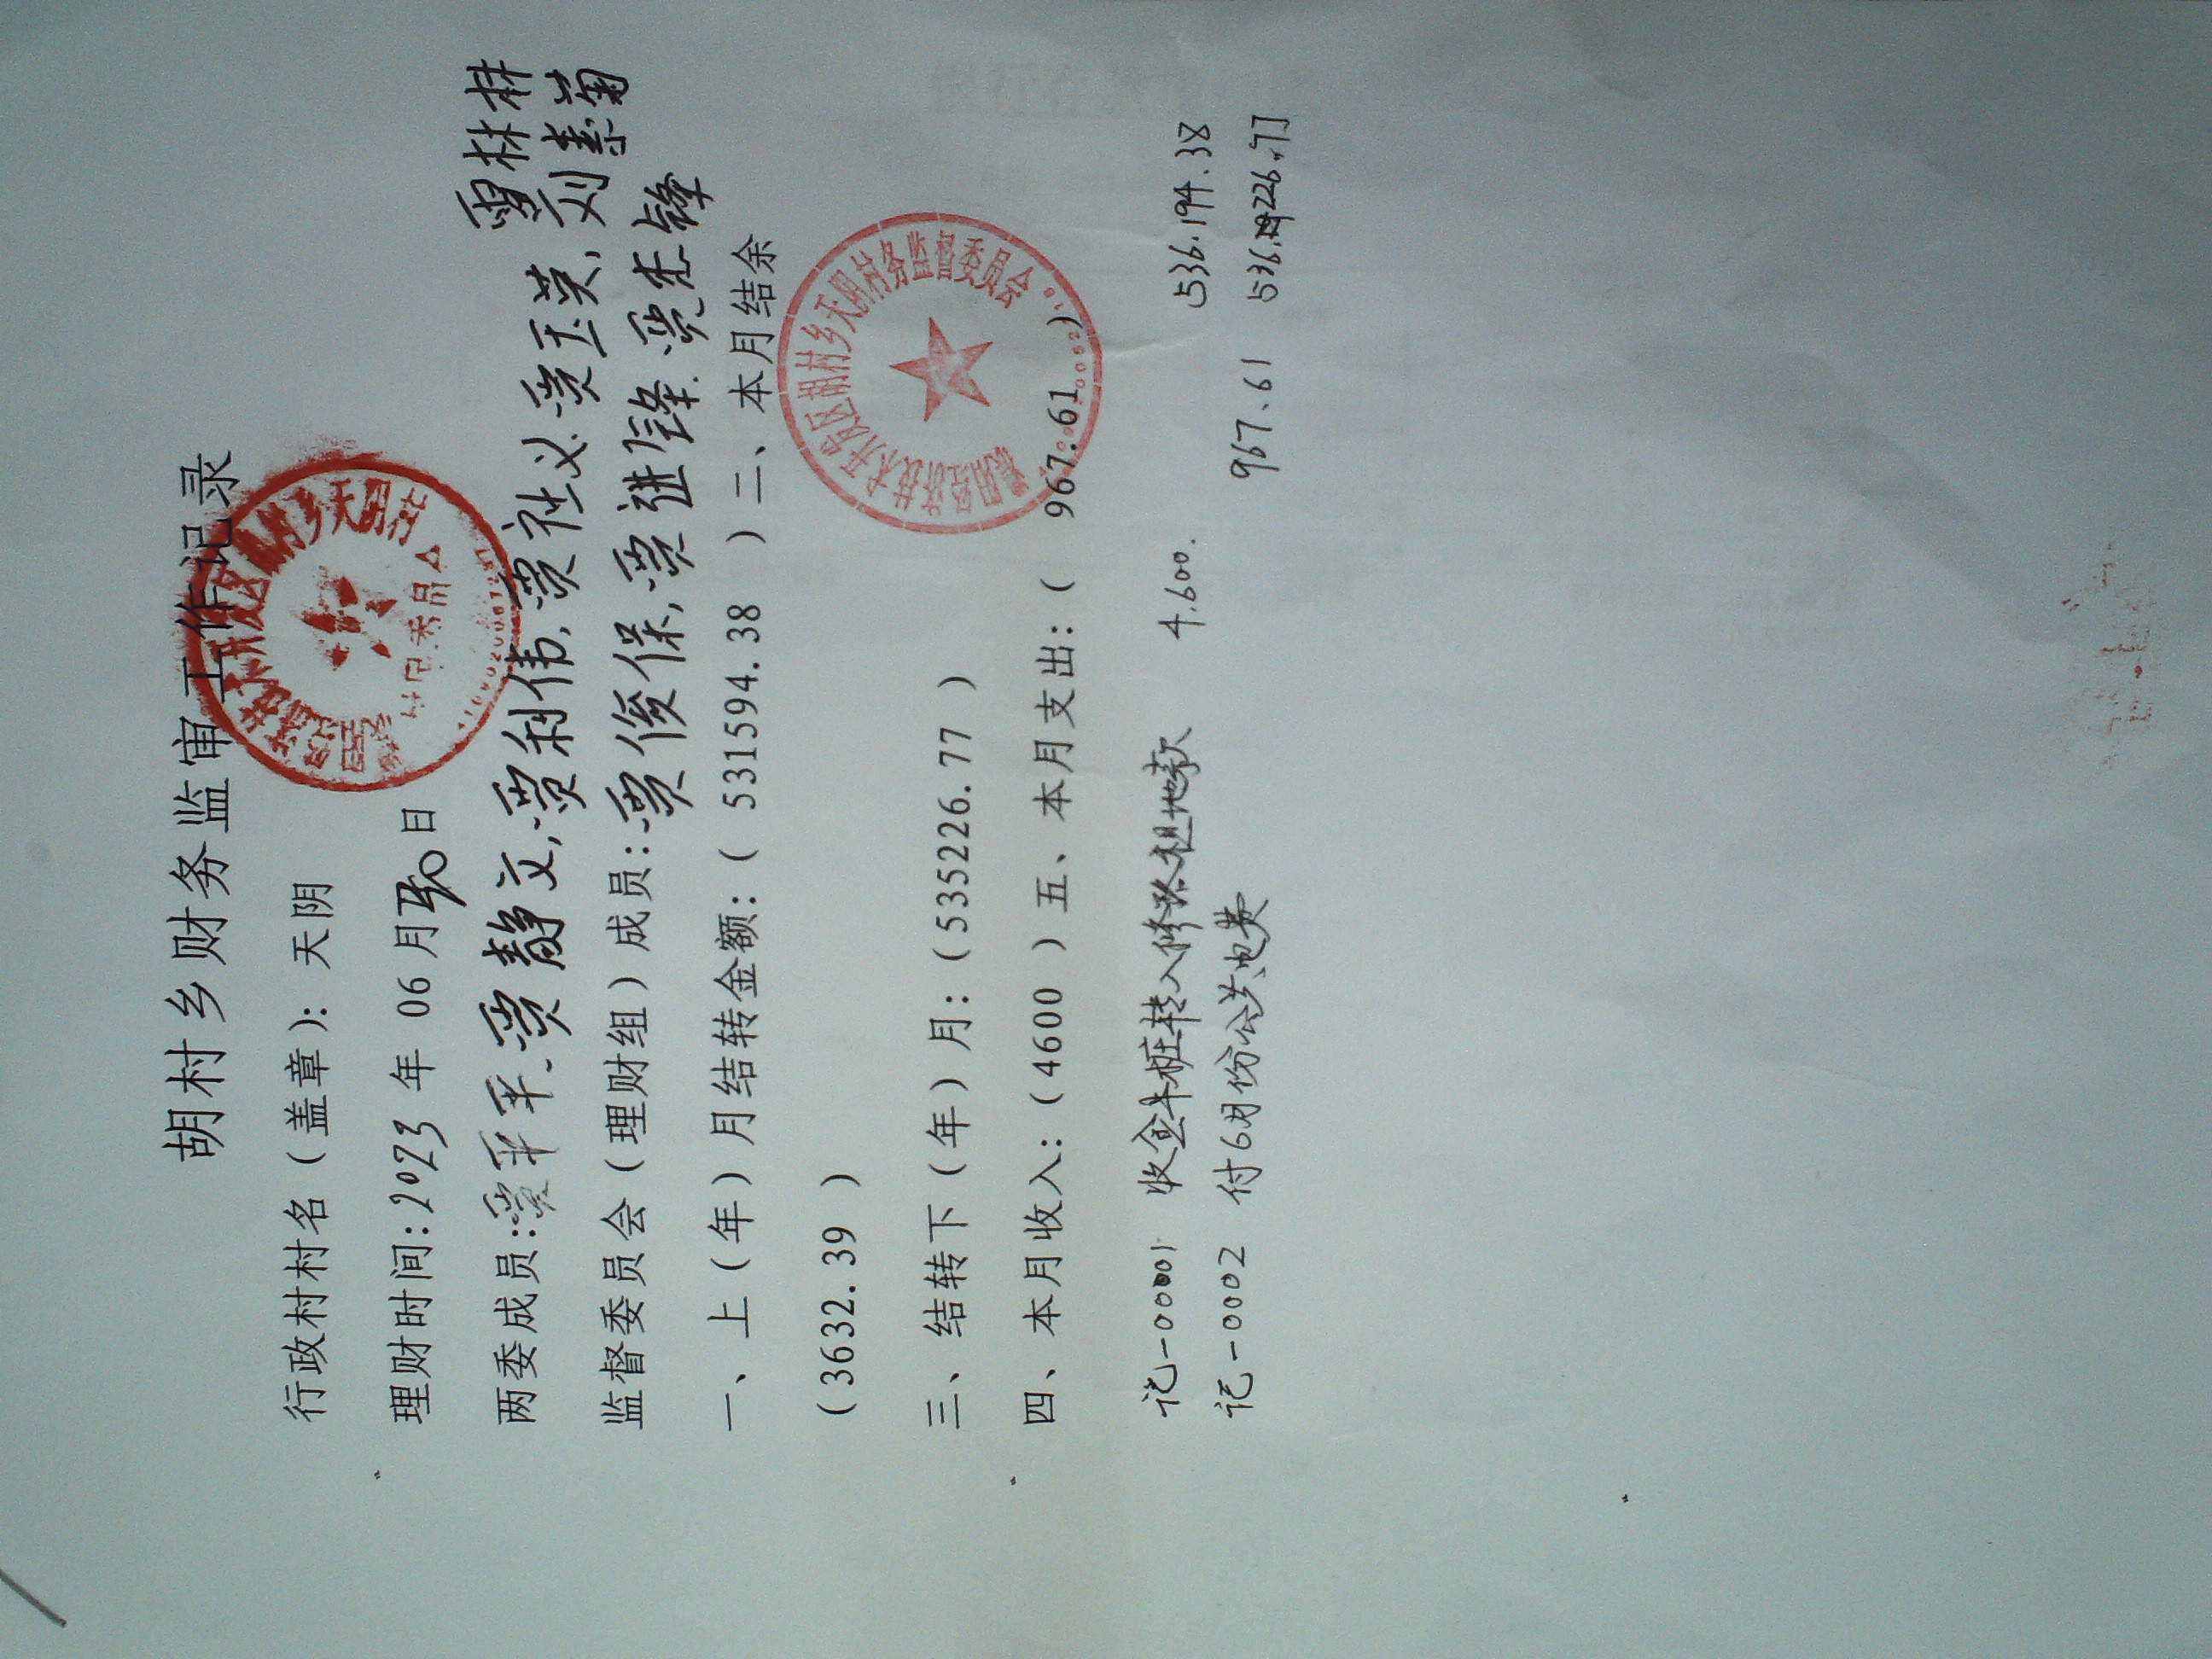 胡村乡财务监审工作记录
行政村村名（盖章）：天阴
理财时间：2023 年 06 月 30 日
雷林林
两委成员：贾平平、贾静文，贾利伟，贾社义、贾玉英、刘素菊
监督委员会（理财组）成员：贾俊保，贾进锋、贾志锋
一、上（年）月结转金额：（ 531594.38 ）二、本月结余
（3632.39 ）
三、结转下（年）月：（535226.77 ）
四、本月收入：（4600 ）五、本月支出：（ 967.61 ）
胡村乡天阴村务监督委员会
记-00001 收金牛桩转入修路租地款 4.600. 536.194.38
记-0002 付6月份公共电费 967.61 535.226.77